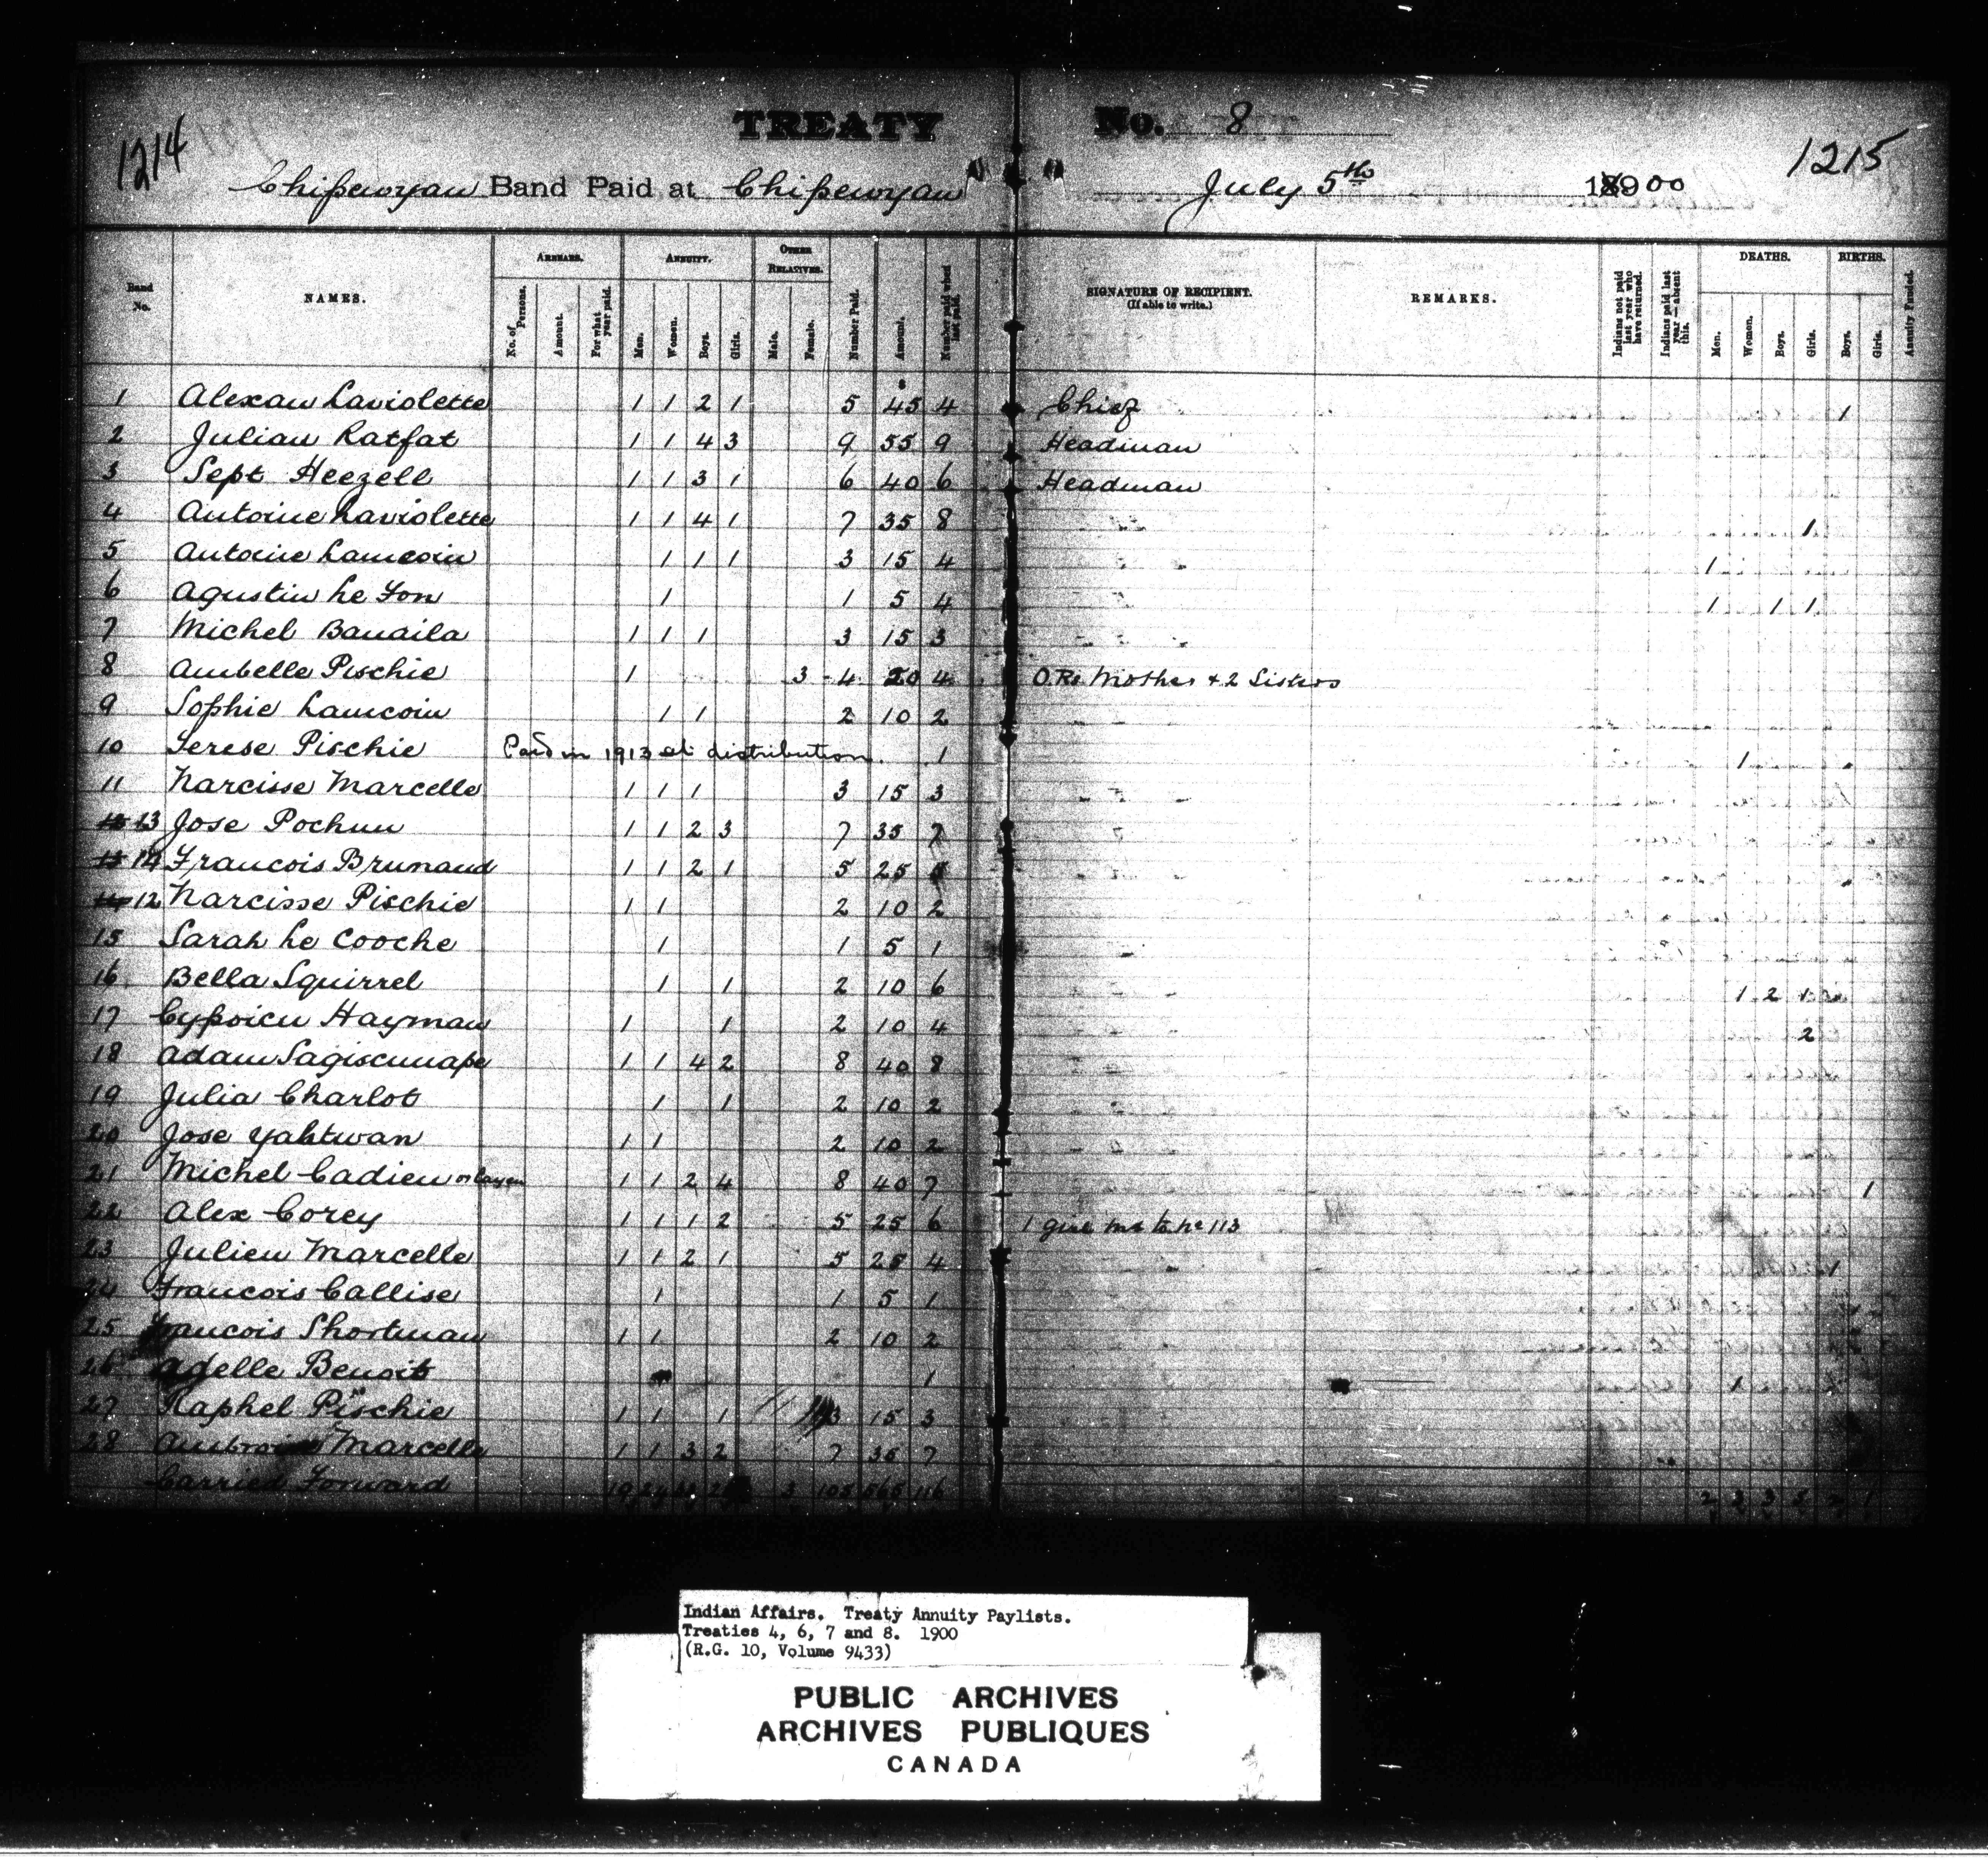 1214
TREATY No. 8
1215
Chipewyan Band Paid at Chipewyan July 5th 1900
Band No.
NAMES.
ARREARS.
No. of Persons.
Amount.
For what year paid.
ANNUITY.
Men.
Women.
Boys.
Girls.
OTHER RELATIVES.
Male.
Female.
Number Paid.
Amount.
Number paid when last paid.
SIGNATURE OF RECIPIENT.
(If able to write.)
REMARKS.
Indians not paid last year who have returned.
Indians paid last year—absent this.
DEATHS.
Men.
Women.
Boys.
Girls.
BIRTHS.
Boys.
Girls.
Annuity Funded.
1 Alexan Laviolette 1 1 2 1 5 45 4 Chief 1
2 Julian Ratfat 1 1 4 3 9 55 9 Headman
3 Sept Heezell 1 1 3 1 6 40 6 Headman
4 Antoine Laviolette 1 1 4 1 7 35 8 1
5 Antoine Lamcoin 1 1 1 3 15 4 1
6 Agustin Le Fon 1 1 5 4 1 1 1
7 Michel Banaila 1 1 1 3 15 3
8 Ambelle Pischie 1 3 4 20 4 O.Rs Mother + 2 Sisters
9 Sophie Lamcoin 1 1 2 10 2
10 Terese Pischie Paid in 1913 at distribution. 1 1
11 Narcisse Marcelle 1 1 1 3 15 3
13 Jose Pochun 1 1 2 3 7 35 7
14 Francois Brunaud 1 1 2 1 5 25 5
12 Narcisse Pischie 1 1 2 10 2
15 Sarah Le Cooche 1 1 5 1
16 Bella Squirrel 1 1 2 10 6 1 2 1
17 Cypoicu Hayman 1 1 2 10 4 2
18 Adam Sagiscunape 1 1 4 2 8 40 8
19 Julia Charlot 1 1 2 10 2
20 Jose Yahtwan 1 1 2 10 2
21 Michel Cadieu or Cayen 1 1 2 4 8 40 7 1
22 Alex Corey 1 1 1 2 5 25 6 1 girl to No 113
23 Julien Marcelle 1 1 2 1 5 25 4 1
24 Francois Callise 1 1 5 1
25 Francois Shortman 1 1 2 10 2
26 Adelle Benoit 1 1
27 Raphel Pischie 1 1 1 3 15 3
28 Ambroise Marcelle 1 1 3 2 7 35 7
Carried Forward 19 24 3 105 565 116 2 3 3 5 2 1
Indian Affairs. Treaty Annuity Paylists.
Treaties 4, 6, 7 and 8. 1900
(R.G. 10, Volume 9433)
PUBLIC ARCHIVES
ARCHIVES PUBLIQUES
CANADA